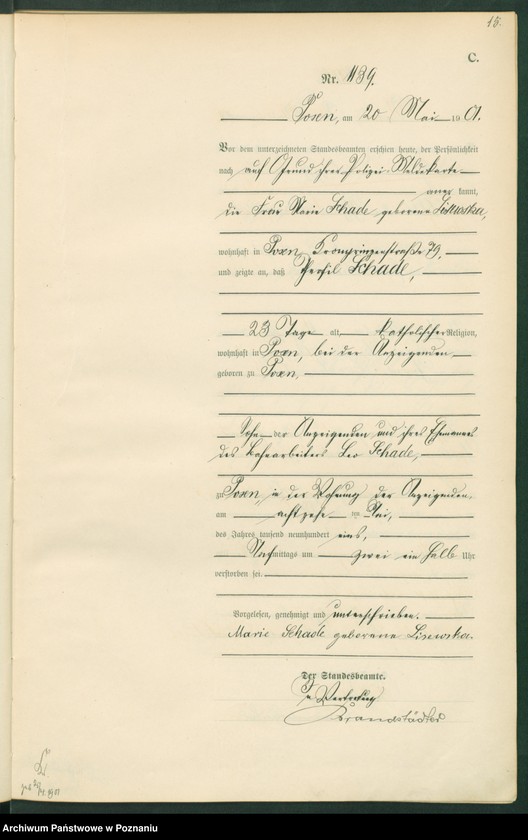 15.
C.
Nr. 1139.
Posen, am 20 Mai 1901.
Vor dem unterzeichneten Standesbeamten erschien heute, der Persönlichkeit
nach auf Grund ihrer Polizei-Meldekarte
anerkannt,
die Frau Marie Schade geborene Lisewska,
wohnhaft in Posen, Kronprinzenstraße 79,
und zeigte an, daß Schade,
23 Tage alt, katholischer Religion,
wohnhaft in Posen, bei der Anzeigenden
geboren zu Posen,
Sohn der Anzeigenden und ihres Ehemannes
des Leo Schade,
zu Posen, in der Wohnung der Anzeigenden
am achtzehn ten Mai,
des Jahres tausend neunhundert eins,
Nachmittags um zwei ein halb Uhr
verstorben sei.
Vorgelesen, genehmigt und unterschrieben.
Marie Schade geborene Lisewska.
Der Standesbeamte.
In Vertretung
Brandstädter
Archiwum Państwowe w Poznaniu